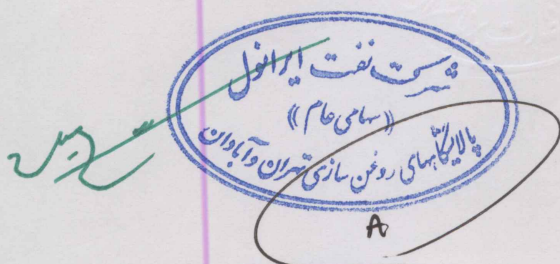 شرکت نفت ایرانول
«سهامی عام»
پالایشگاههای روغن سازی تهران و آبادان
A